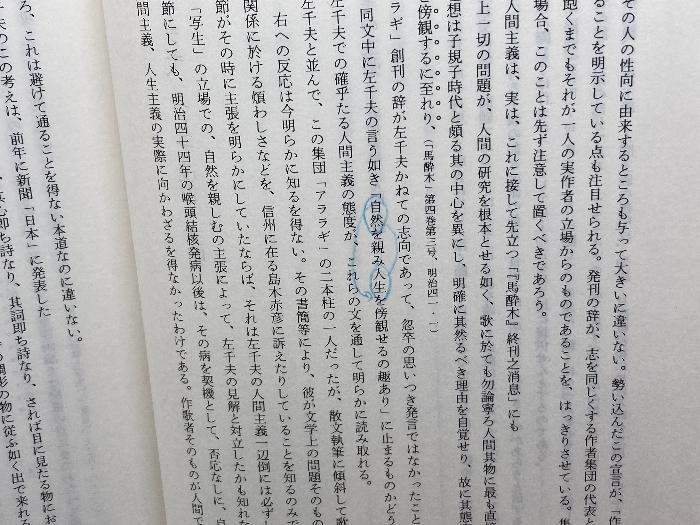 その人の性向に由来するところも与って大きいに違いない。勢い込んだこの宣言が、「作
ることを明示している点も注目せられる。発刊の辞が、志を同じくする作者集団の代表と
飽くまでもそれが一人の実作者の立場からのものであることを、はっきりさせている。集
場合、このことは先ず注意して置くべきであろう。
人間主義は、実は、これに接して先立つ「『馬酔木』終刊之消息」にも
上一切の問題が、人間の研究を根本とせる如く、歌に於ても勿論寧ろ人間其物に最も直
想は子規子時代と頗る其の中心を異にし、明確に其然るべき理由を自覚せり、故に其態
傍観するに至れり、（「馬酔木」第四巻第三号、明治四一・一）
ラギ」創刊の辞が左千夫かねての志向であって、忽卒の思いつき発言ではなかったこと
同文中に左千夫の言う如き「自然を親み人生を傍観せるの趣あり」に止まるものかどう
左千夫での確乎たる人間主義の態度が、これらの文を通して明らかに読み取れる。
左千夫と並んで、この集団「アララギ」の二本柱の一人だったが、散文執筆に傾斜して歌
右への反応は今明らかに知るを得ない。その書簡等により、彼が文学上の問題そのもの
関係に於ける煩わしさなどを、信州に在る島木赤彦に訴えたりしていることを知るのみで
節がその時に主張を明らかにしていたならば、それは左千夫の人間主義一辺倒には必ずし
「写生」の立場での、自然を親しむの主張によって、左千夫の見解と対立したかも知れな
節にしても、明治四十四年の喉頭結核発病以後は、その病を契機として、否応なしに、自
間主義、人生主義の実際に向かわざるを得なかったわけである。作歌者そのものが人間で
ろ、これは避けて通ることを得ない本道なのに違いない。
夫のこの考えは、前年に新聞「日本」に発表した
心即ち詩なり、其詞即ち詩なり、されば目に見たる物にお
の物に従ふ如く出で来れる